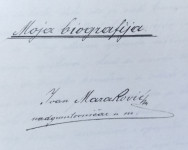 Moja biografija
Ivan Maraković
u m.